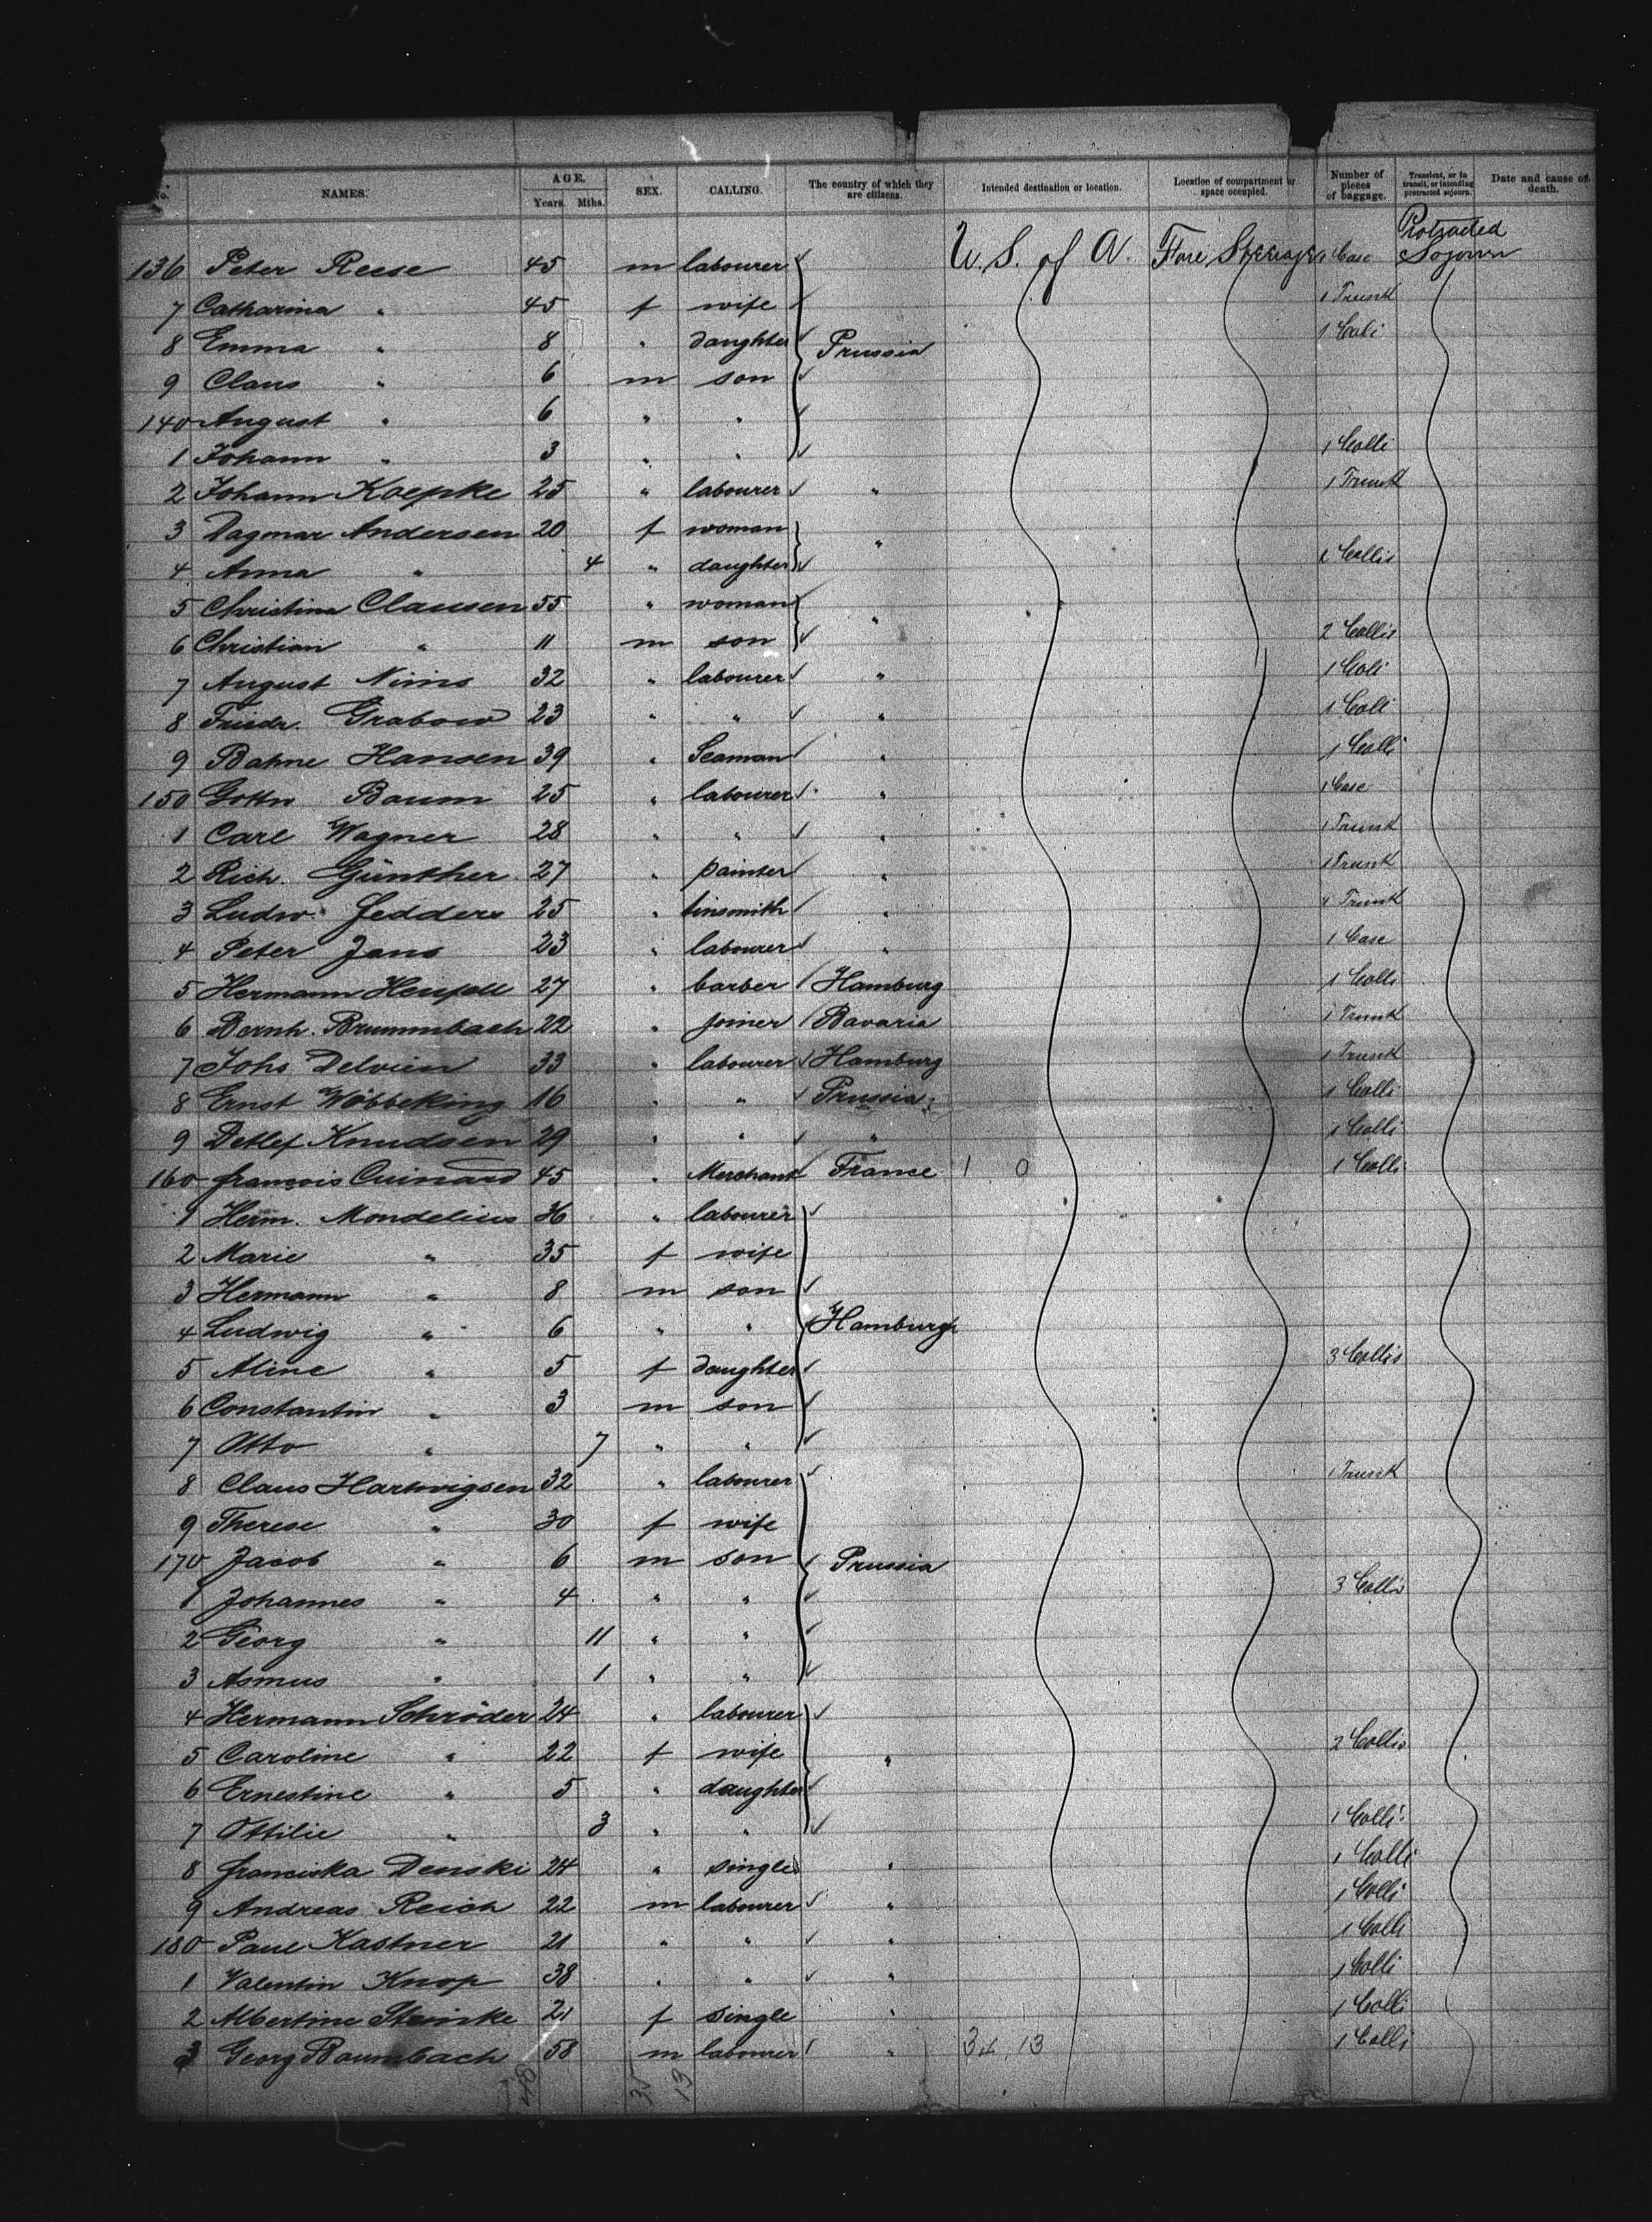 No. NAMES. AGE. Years. Mths. SEX. CALLING. The country of which they are citizens. Intended destination or location. Location of compartment or space occupied. Number of pieces of baggage. Transient, or in transit, or intending protracted sojourn. Date and cause of death.
136 Peter Reese 45 m labourer U. S. of A. Fore Steerage 1 Case Protracted Sojourn
7 Catharina " 45 f wife 1 Trunk
8 Emma " 8 " daughter Prussia 1 Coli
9 Claus " 6 m son
140 August " 6 " "
1 Johann " 3 " " 1 Colli
2 Johann Koepke 25 " labourer " 1 Trunk
3 Dagmar Andersen 20 f woman "
4 Anna " 4 " daughter Collis
5 Christina Clausen 55 " woman "
6 Christian " 11 m son 2 Collis
7 August Nims 32 " labourer " 1 Coli
8 Friedr. Grabow 23 " " " 1 Coli
9 Bahne Hansen 39 " Seaman " 1 Colli
150 Gottw Baum 25 " labourer " 1 Case
1 Carl Wagner 28 " " " 1 Trunk
2 Rich. Günther 27 " painter " 1 Trunk
3 Ludw. Jedders 25 " tinsmith " 1 Trunk
4 Peter Jans 23 " labourer " 1 Case
5 Hermann 27 " barber Hamburg 1 Colli
6 Bernh. Brummbach 22 " joiner Bavaria 1 Trunk
7 Johs Delvien 33 " labourer Hamburg 1 Trunk
8 Ernst Wöbbeking 16 " " Prussia 1 Colli
9 Detlef Knudsen 29 " " " 1 Colli
160 François Cuinard 45 " Merchant France 1 0 1 Colli
1 Herm. Mondelius 36 " labourer
2 Marie " 35 f wife
3 Hermann " 8 m son
4 Ludwig " 6 " " Hamburg
5 Aline " 5 f daughter 3 Collis
6 Constantin " 3 m son
7 Otto " 7 " "
8 Claus Hartwigsen 32 " labourer 1 Trunk
9 Therese " 30 f wife
170 Jacob " 6 m son Prussia
1 Johannes " 4 " " 3 Collis
2 Georg " 11 " "
3 Asmus " 1 " "
4 Hermann Schröder 24 " labourer
5 Caroline " 22 f wife " 2 Collis
6 Ernestine " 5 " daughter
7 Ottilie " 3 " " 1 Colli
8 Franciska Denski 24 " single " 1 Colli
9 Andreas Reich 22 m labourer " 1 Colli
180 Paul Kastner 21 " " " 1 Colli
1 Valentin Knop 38 " " " 1 Colli
2 Albertine Steinke 21 f single " 1 Colli
3 Georg Baumbach 58 m labourer " 34 13 1 Colli
13